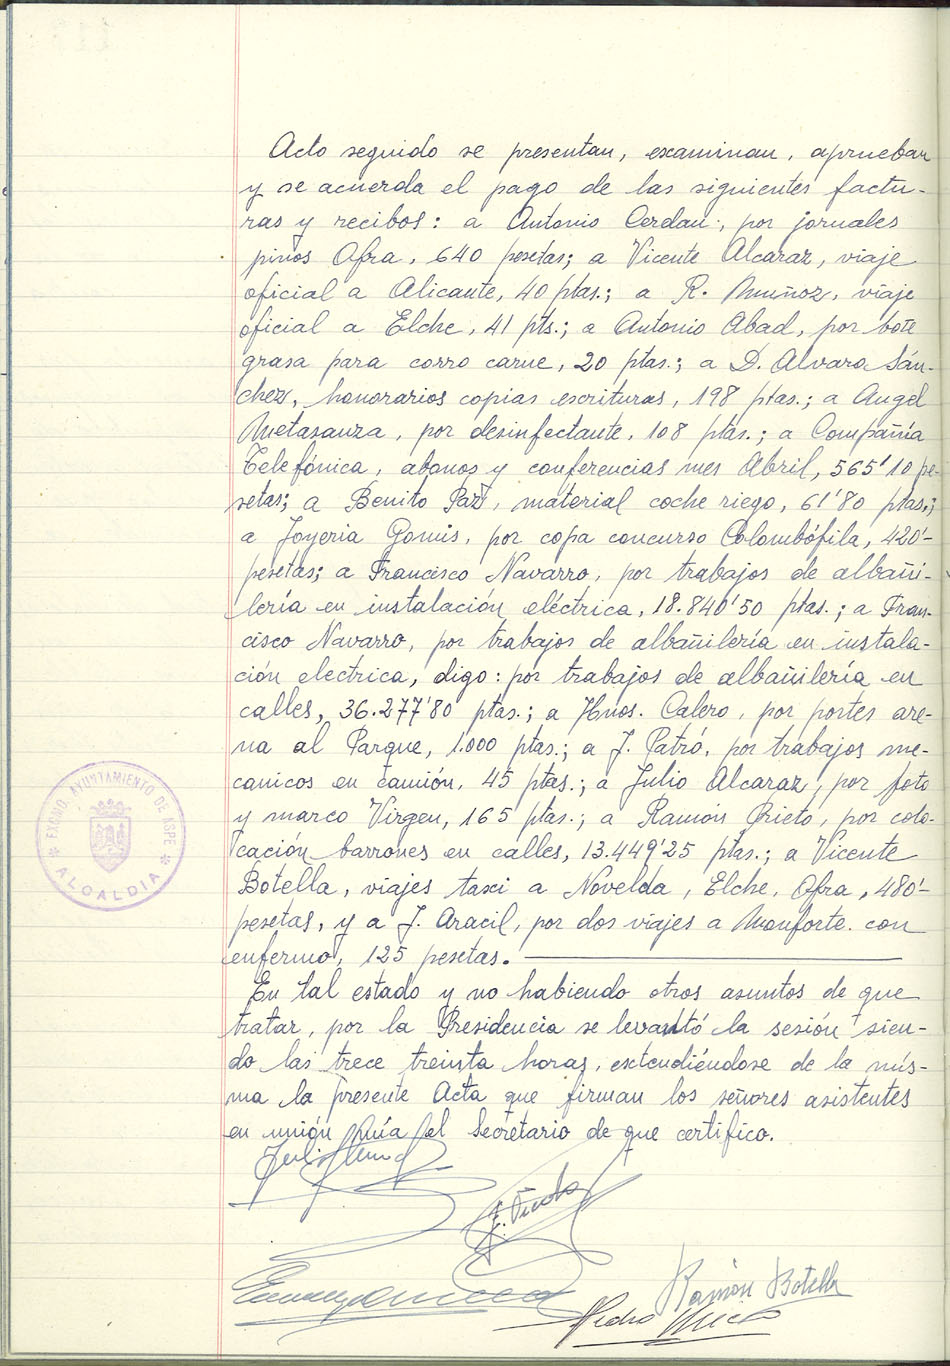 Acto seguido se presentan, examinan, aprueban
y se acuerda el pago de las siguientes factu-
ras y recibos: a Antonio Cerdan, por jornales
pinos Ofra, 640 pesetas; a Vicente Alcaraz, viaje
oficial a Alicante, 40 ptas.; a R. Muñoz, viaje
oficial a Elche, 41 pts.; a Antonio Abad, por bote
grasa para corro carne, 20 ptas.; a D. Alvaro Sán-
chez, honorarios copias escrituras, 198 ptas.; a Angel
Metasanza, por desinfectante, 108 ptas.; a Compañía
Telefónica, abonos y conferencias mes Abril, 565'10 pe-
setas; a Benito Paz, material coche riego, 61'80 ptas.;
a Joyeria Gomis, por copa concurso Colombófila, 420'-
pesetas; a Francisco Navarro, por trabajos de albañi-
lería en instalación eléctrica, 18.840'50 ptas.; a Fran-
cisco Navarro, por trabajos de albañilería en instala-
ción electrica, digo: por trabajos de albañilería en
calles, 36.277'80 ptas.; a Hnos. Calero, por portes are-
na al Parque, 1.000 ptas.; a J. Patró, por trabajos me-
canicos en camión, 45 ptas.; a Julio Alcaraz, por foto
y marco Virgen, 165 ptas.; a Ramón Prieto, por colo-
cación barrones en calles, 13.449'25 ptas.; a Vicente
Botella, viajes taxi a Novelda, Elche, Ofra, 480'-
pesetas, y a J. Aracil, por dos viajes a Monforte con
enfermo, 125 pesetas.
En tal estado y no habiendo otros asuntos de que
tratar, por la Presidencia se levantó la sesión sien-
do las trece treinta horas, extendiéndose de la mis-
ma la presente Acta que firman los señores asistentes
en unión mía el Secretario de que certifico.
EXCMO. AYUNTAMIENTO DE ASPE
ALCALDIA
Ramón Botella
Pedro